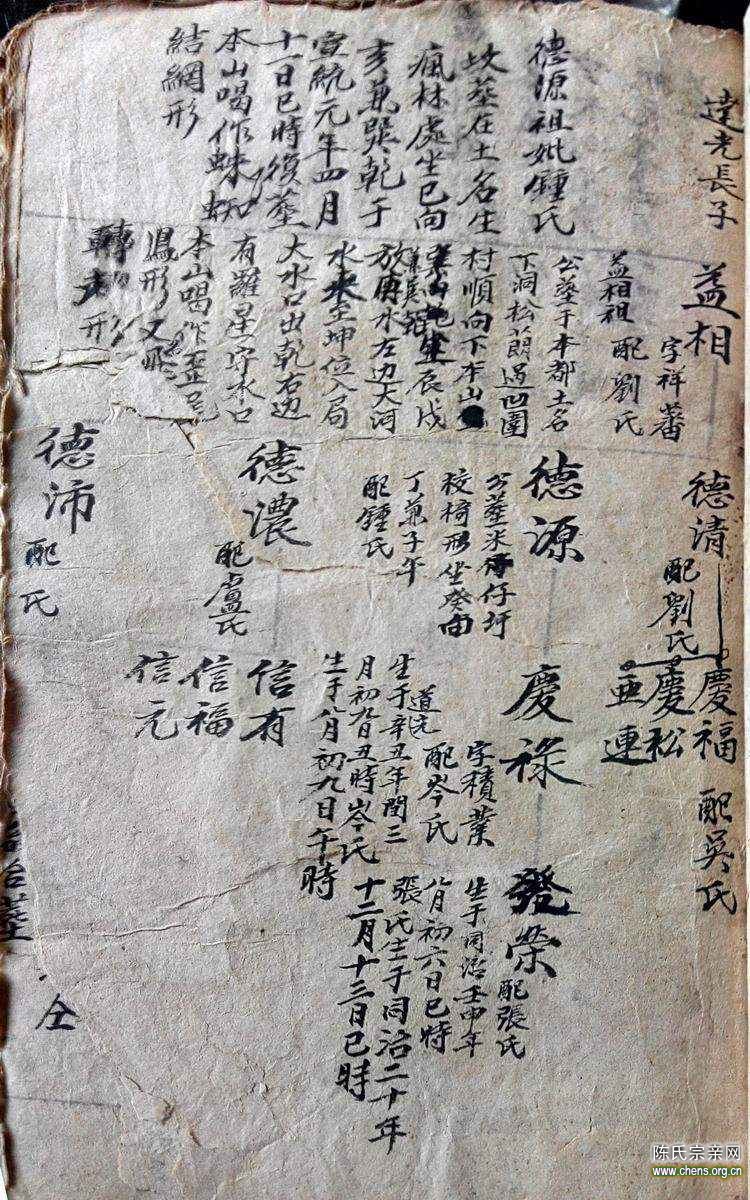 達尤長子
益相
字祥蕃
配劉氏
益相祖
公塋于本都土名
丁洞松蓢過凹圍
村順向下本山
辰戌
放庚水左边大河
水來至坤位入局
大水口出乾右边
有羅星守水口
本山喝作
形又
形
德源祖妣鍾氏
坟塋在土名生
瘋林處坐巳向
亥兼巽乾于
宣統元年四月
十一日巳時復塋
本山喝作蛛蜘
結網形
德清
配劉氏
德源
公塋米仔圩
校椅形坐癸向
丁兼子午
配鍾氏
德濃
配盧氏
德沛
配氏
慶福
配吳氏
慶松
亜連
慶祿
字積業
道光
配岑氏
生于辛丑年閏三
月初九日丑時岑氏
生于八月初九日午時
信有
信福
信元
發榮
配張氏
生于同治壬申年
八月初六日巳時
張氏生于同治二十年
十二月十三日巳時
仝
陈氏宗亲网
www.chens.org.cn